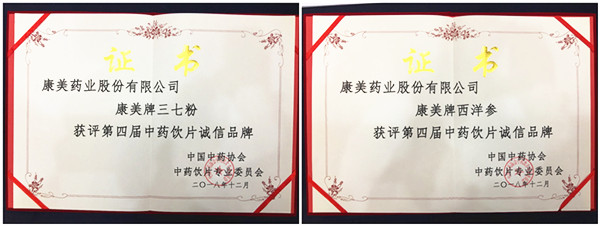 证书
康美药业股份有限公司
康美牌三七粉
获评第四届中药饮片诚信品牌
中国中药协会
中药饮片专业委员会
二〇一八年十二月
证书
康美药业股份有限公司
康美牌西洋参
获评第四届中药饮片诚信品牌
中国中药协会
中药饮片专业委员会
二〇一八年十二月